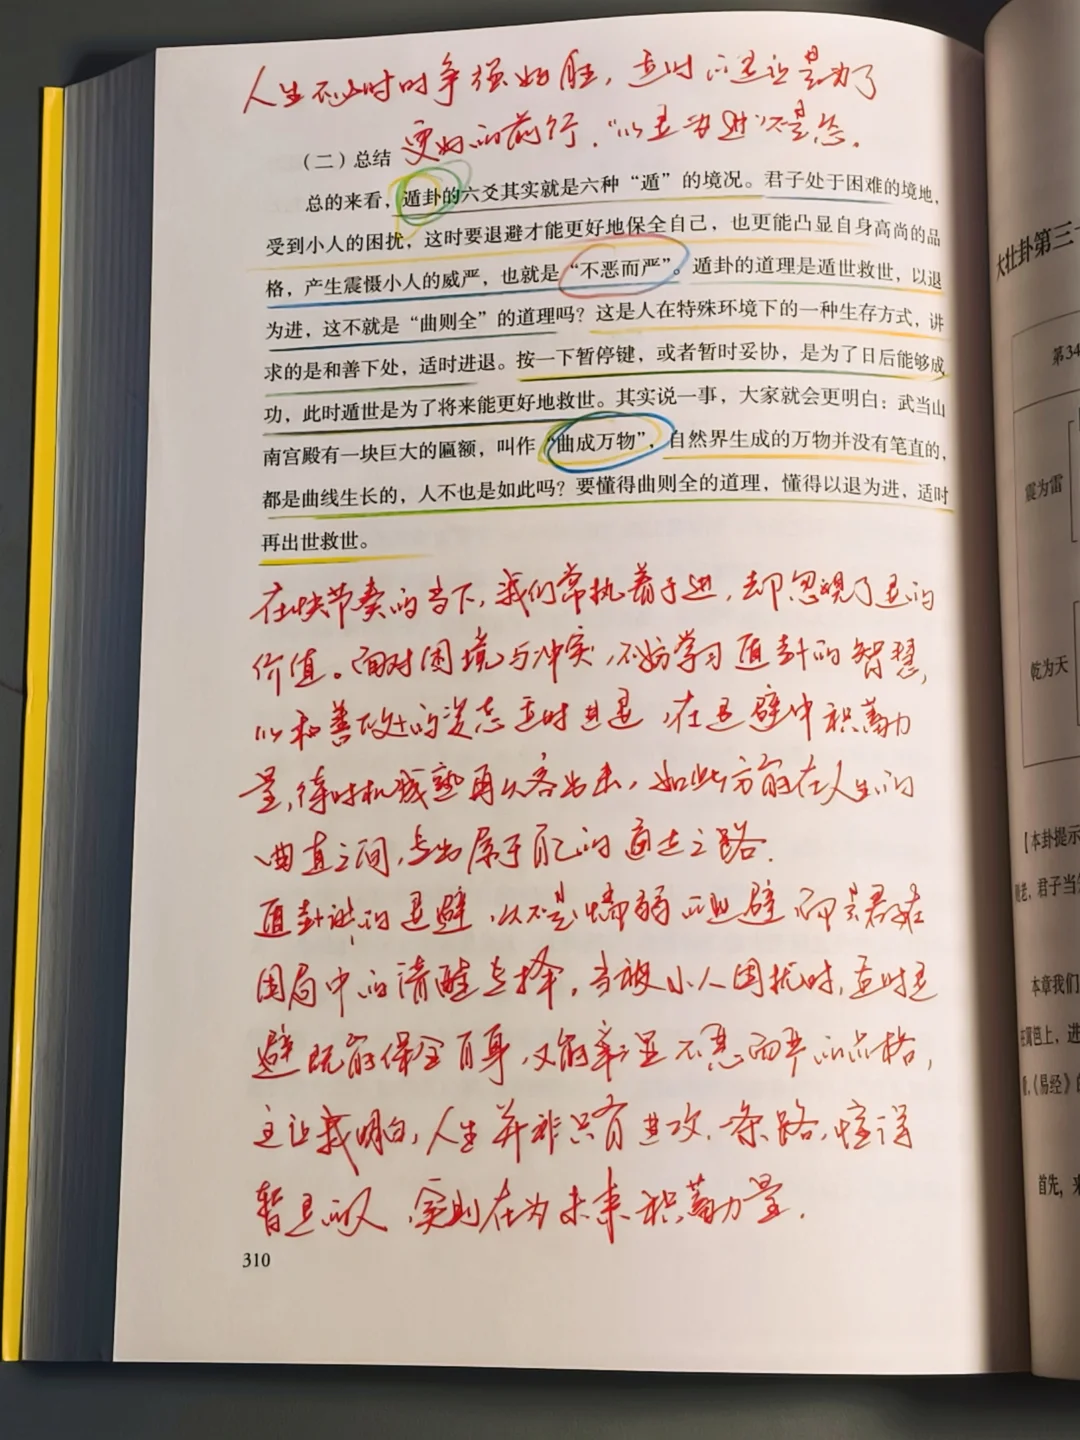 人生不必时时争强好胜，适时的退让是为了
更好的前行，“以退为进”不是怂。
（二）总结
总的来看，遁卦的六爻其实就是六种“遁”的境况。君子处于困难的境地，
受到小人的困扰，这时要退避才能更好地保全自己，也更能凸显自身高尚的品
格，产生震慑小人的威严，也就是“不恶而严”。遁卦的道理是遁世救世，以退
为进，这不就是“曲则全”的道理吗？这是人在特殊环境下的一种生存方式，讲
求的是和善下处，适时进退。按一下暂停键，或者暂时妥协，是为了日后能够成
功，此时遁世是为了将来能更好地救世。其实说一事，大家就会更明白：武当山
南宫殿有一块巨大的匾额，叫作“曲成万物”，自然界生成的万物并没有笔直的，
都是曲线生长的，人不也是如此吗？要懂得曲则全的道理，懂得以退为进，适时
再出世救世。
在快节奏的当下，我们常执着于进，却忽视了退的
价值。面对困境与冲突，不妨学习遁卦的智慧，
以和善处的姿态适时进退，在退避中积蓄力
量，待时机成熟再从容出击，如此方能在人生的
曲直之间，走出属于自己的通达之路.
遁卦说的退避，从不是懦弱的逃避，而是君子在
困局中的清醒选择，当被小人困扰时，适时退
避既能保全自身，又能彰显不恶而严的品格，
这让我明白，人生并非只有进攻一条路，懂得
暂退的人，实则在为未来积蓄力量.
310
大壮卦第三十
第34
震为雷
乾为天
［本卦提示
君子当
本章我们
在篱笆上，进
《易经》的
首先，来